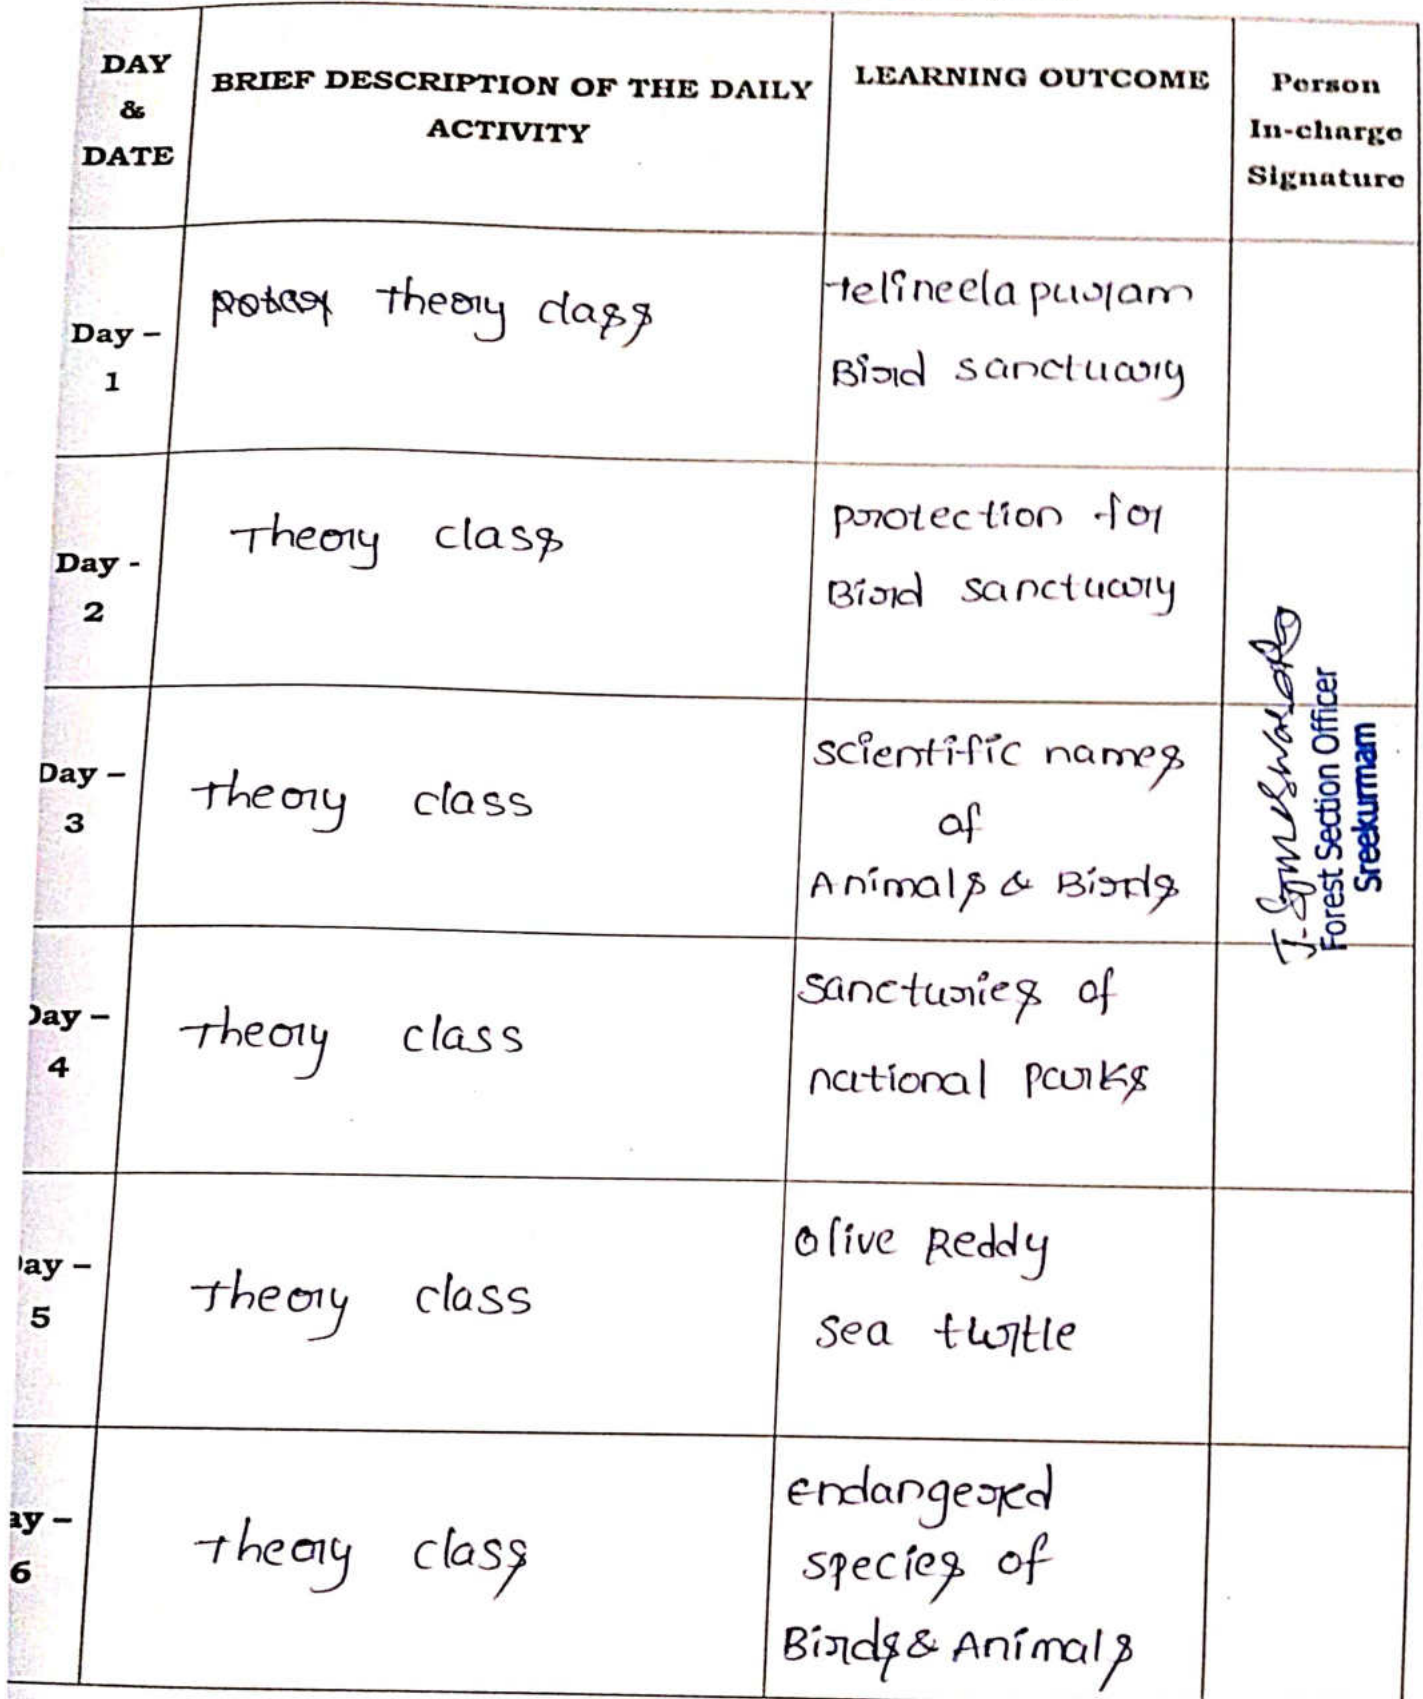 DAY
&
DATE
BRIEF DESCRIPTION OF THE DAILY
ACTIVITY
LEARNING OUTCOME
Person
In-charge
Signature
Day –
1
theory class
telineelapuram
Bird sanctuary
Day -
2
Theory class
protection for
Bird sanctuary
Day –
3
theory class
scientific names
of
Animals & Birds
Forest Section Officer
Sreekurmam
Day –
4
theory class
sancturies of
national parks
ay –
5
theory class
olive Reddy
sea turtle
ay –
6
theory class
endangered
species of
Birds & Animals